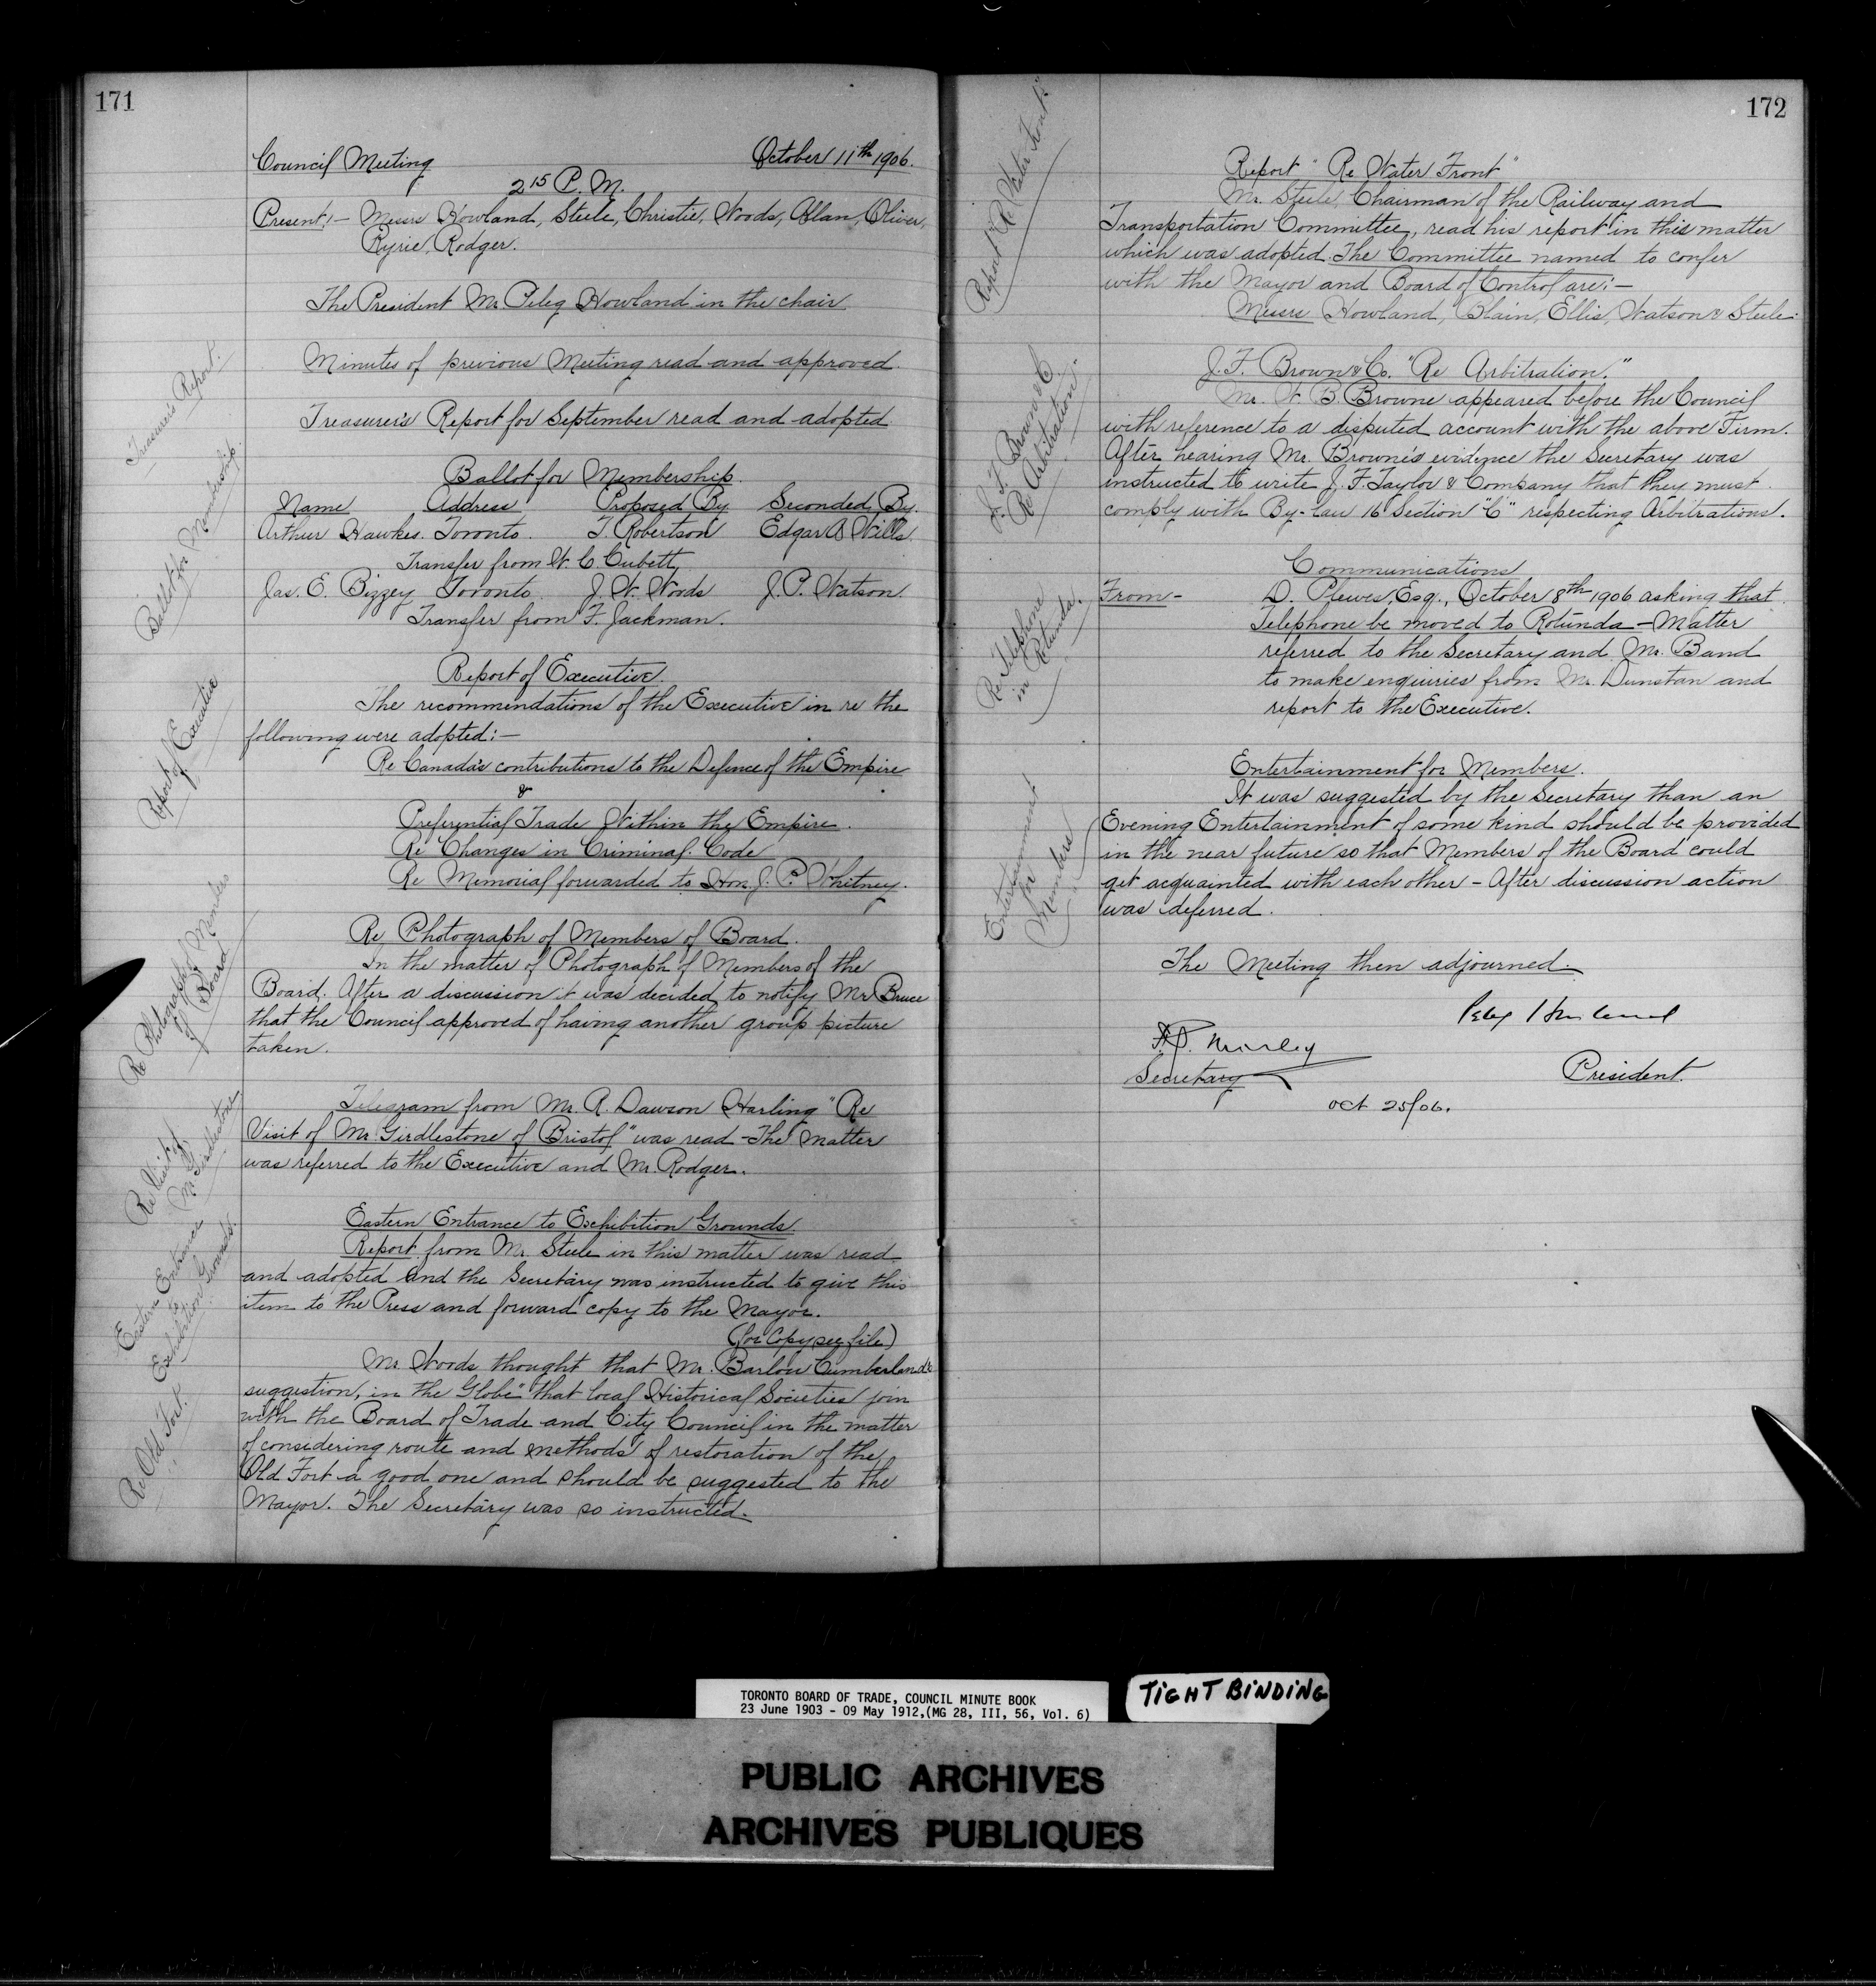 171
Council Meeting October 11th 1906.
2 15 P. M.
Present:- Messrs Howland, Steele, Christie, Woods, Allan, Oliver,
Ryrie, Rodger.
The President Mr. Peleg Howland in the chair
Minutes of previous Meeting read and approved.
Treasurer's Report.
Treasurer's Report for September read and adopted
Ballot for Membership.
Ballot for Membership.
Name Address Proposed By Seconded By.
Arthur Hawkes. Toronto. T. Robertson Edgar A Wills.
Transfer from W. C. Cubett
Jas. E. Bizzey Toronto J. W. Woods J. P. Watson
Transfer from F. Jackman.
Report of Executive
Report of Executive.
The recommendations of the Executive in re the
following were adopted:-
Re Canada's contributions to the Defence of the Empire
&
Preferential Trade Within the Empire.
Re Changes in Criminal Code
Re Memorial forwarded to Hon. J. P. Whitney.
Re Photograph of Members
of Board
Re Photograph of Members of Board.
In the matter of Photograph of Members of the
Board. After a discussion it was decided to notify Mr Bruce
that the Council approved of having another group picture
taken.
Re Visit of
Mr Girdlestone
Telegram from Mr. R. Dawson Harling "Re
Visit of Mr. Girdlestone of Bristol" was read - The matter
was referred to the Executive and Mr. Rodger.
Eastern Entrance
to
Exhibition Grounds.
Eastern Entrance to Exhibition Grounds.
Report from Mr. Steele in this matter was read
and adopted and the Secretary was instructed to give this
item to the Press and forward copy to the Mayor.
(for Copy see file)
Re Old Fort.
Mr. Woods thought that Mr. Barlow Cumberland's
suggestion, in the Globe" that local Historical Societies join
with the Board of Trade and City Council in the matter
of considering route and methods of restoration of the
Old Fort a good one and should be suggested to the
Mayor. The Secretary was so instructed.
172
Report "Re Water Front"
Report "Re Water Front"
Mr. Steele, Chairman of the Railway and
Transportation Committee, read his report in this matter
which was adopted. The Committee named to confer
with the Mayor and Board of Control are:-
Messrs Howland, Blain, Ellis, Watson & Steele.
J. F. Brown & C.
Re Arbitration".
J. F. Brown & Co. "Re Arbitration."
Mr. W. B Browne appeared before the Council
with reference to a disputed account with the above Firm.
After hearing Mr. Browne's evidence the Secretary was
instructed to write J. F. Taylor & Company that they must
comply with By-Law 16 Section "C" respecting Arbitrations.
Re Telephone
in Rotunda.
Communications
From - D. Plewes, Esq., October 8th 1906 asking that
Telephone be moved to Rotunda - Matter
referred to the Secretary and Mr. Band
to make enquiries from Mr. Dunstan and
report to the Executive.
Entertainment
for
Members
Entertainment for Members.
It was suggested by the Secretary than an
Evening Entertainment of some kind should be provided
in the near future so that Members of the Board could
get acquainted with each other - After discussion action
was deferred.
The Meeting then adjourned.
Peleg Howland
Secretary President.
Oct 25/06.
TORONTO BOARD OF TRADE, COUNCIL MINUTE BOOK
23 June 1903 - 09 May 1912,(MG 28, III, 56, Vol. 6)
TIGHT BINDING
PUBLIC ARCHIVES
ARCHIVES PUBLIQUES